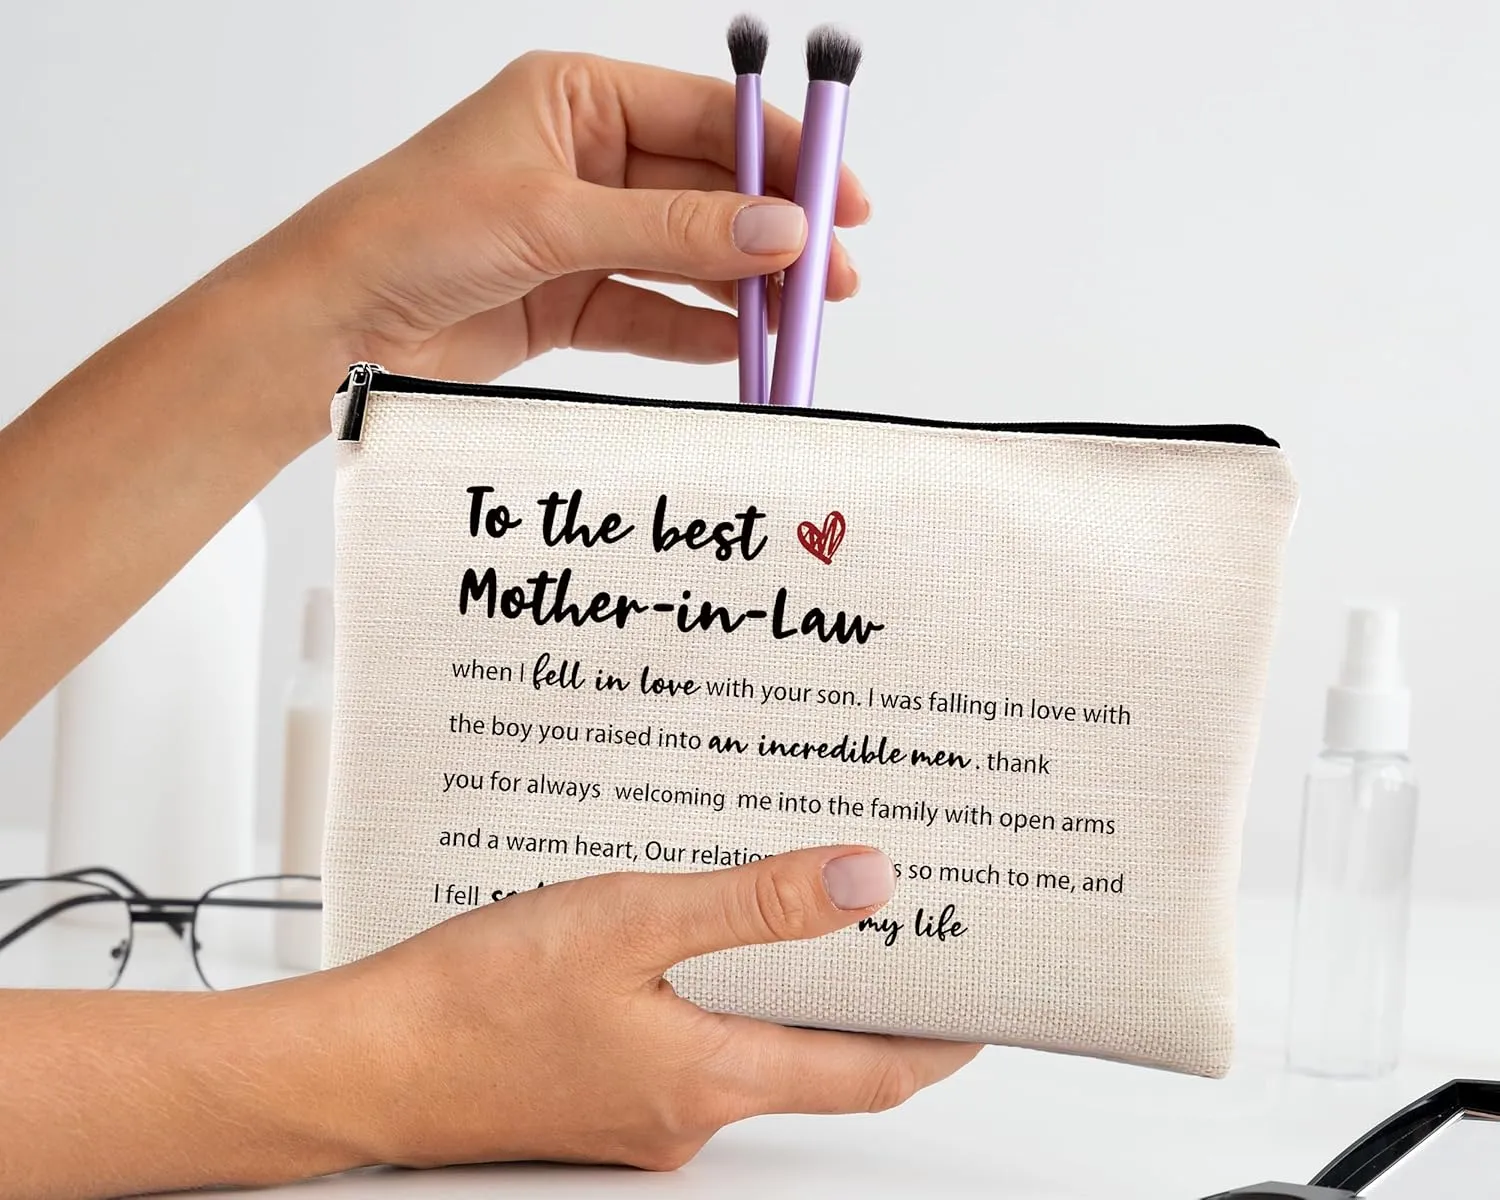 To the best
Mother-in-Law
when I fell in love with your son. I was falling in love with
the boy you raised into an incredible men. thank
you for always welcoming me into the family with open arms
and a warm heart, Our so much to me, and
I fell
my life